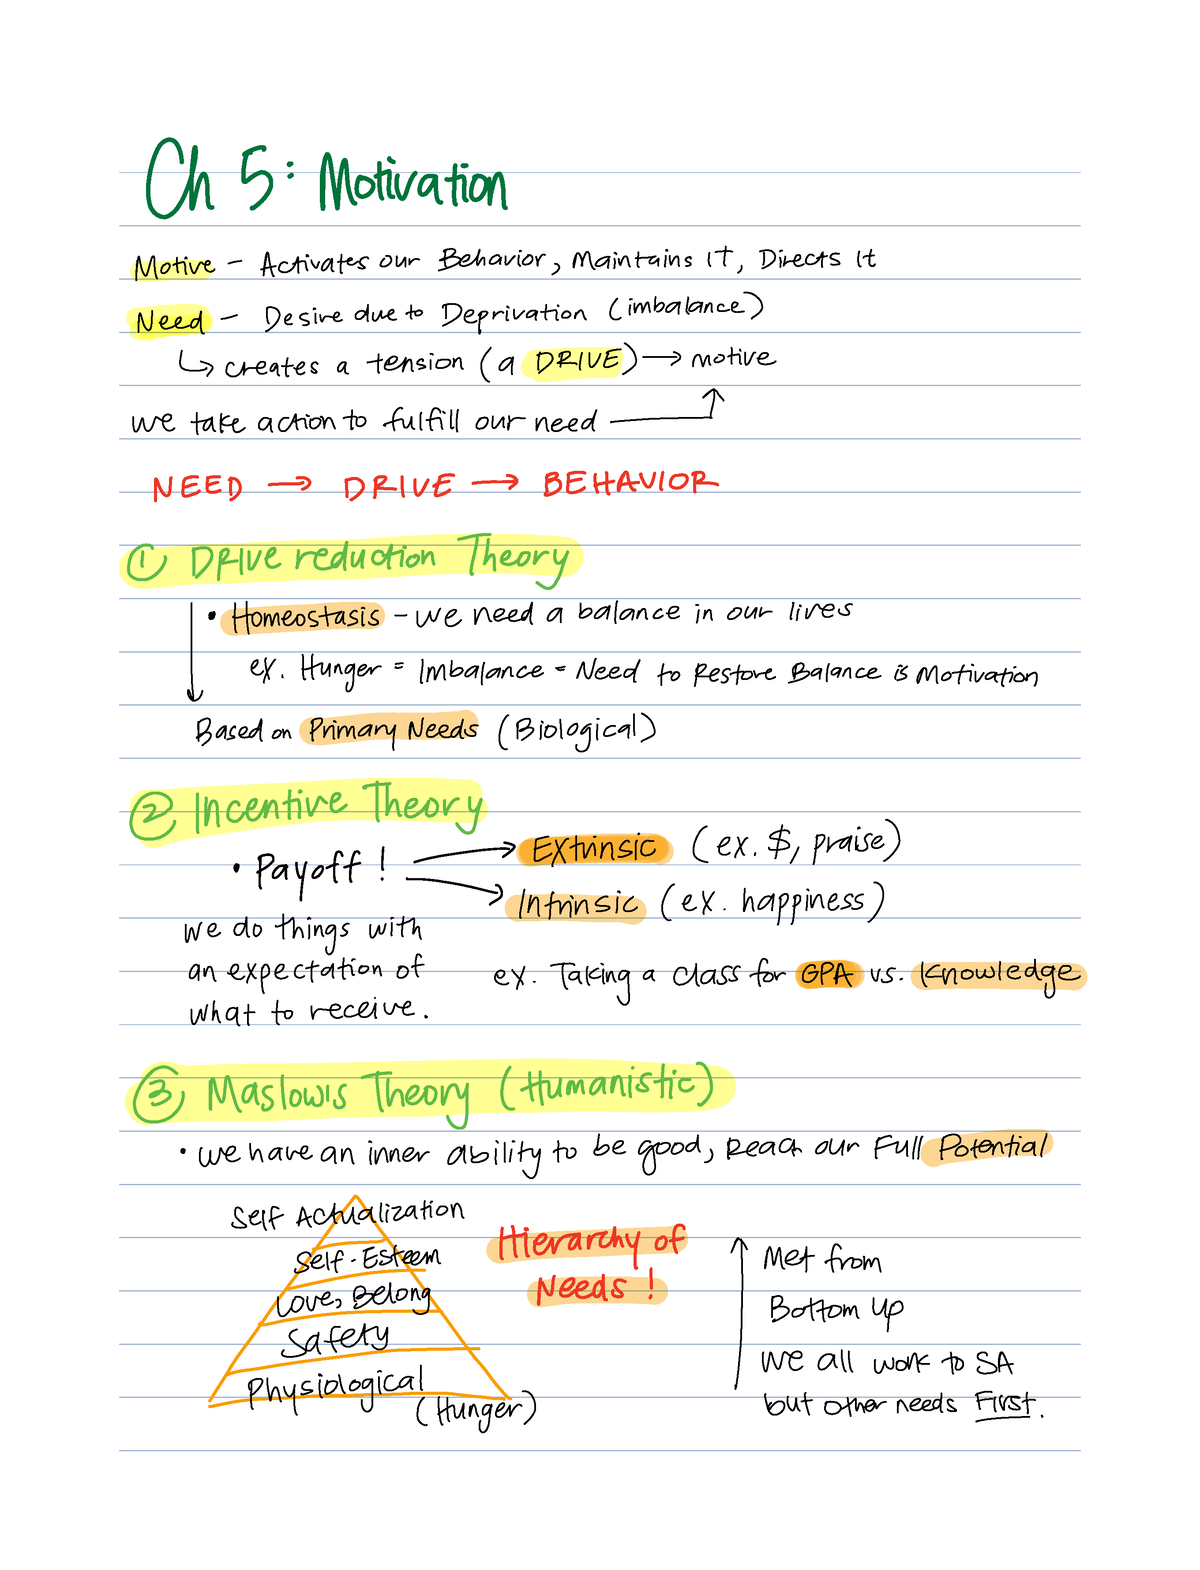 Ch 5: Motivation
Motive - Activates our Behavior, Maintains IT, Directs It
Need - Desire due to Deprivation (imbalance)
↳ creates a tension (a DRIVE) → motive
we take action to fulfill our need
NEED → DRIVE → BEHAVIOR
① DRIVE reduction Theory
• Homeostasis - we need a balance in our lives
ex. Hunger = Imbalance = Need to Restore Balance is Motivation
Based on Primary Needs (Biological)
② Incentive Theory
• Payoff! → Extrinsic (ex. $, praise)
→ Intrinsic (ex. happiness)
we do things with
an expectation of
what to receive.
ex. Taking a class for GPA vs. Knowledge
③ Maslow's Theory (Humanistic)
• we have an inner ability to be good, Reach our Full Potential
Self Actualization
Self-Esteem
Love, Belong
Safety
Physiological
(Hunger)
Hierarchy of
Needs!
Met from
Bottom Up
we all work to SA
but other needs First.